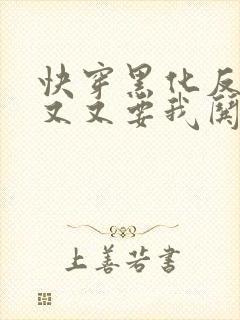 快穿黑化反
又又要我関
上善若書